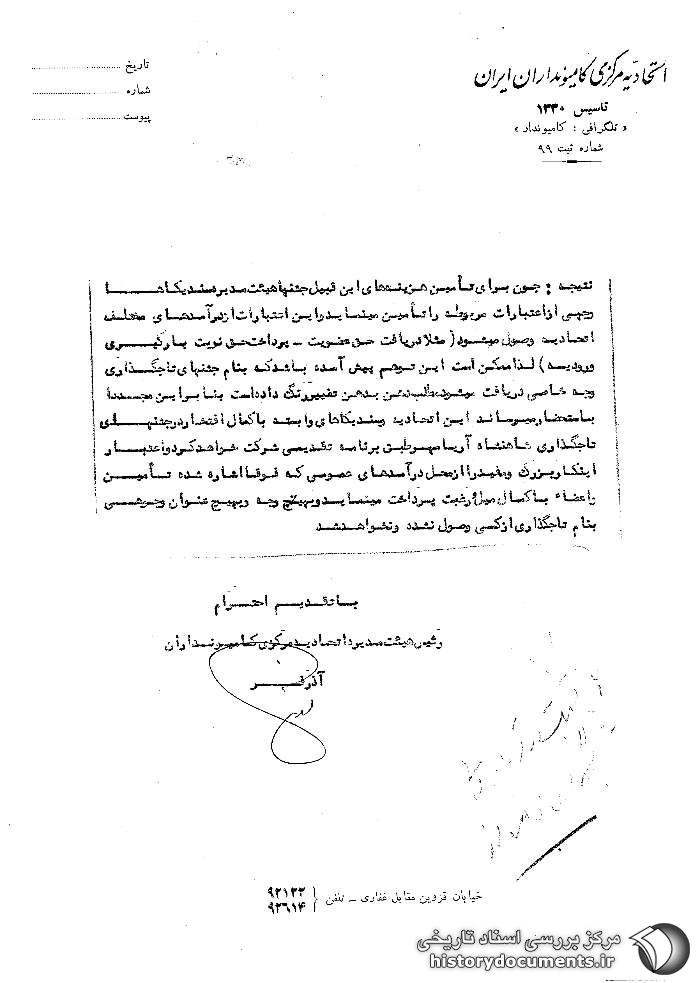 اتحادیه مرکزی کامیونداران ایران
تاسیس ۱۳۳۰
« تلگرافی : کامیوندار »
شماره ثبت ۹۹
تاریخ
شماره
پیوست
نتیجه : چون برای تأمین هزینه‌های این قبیل جشنها هیئت مدیره سندیکاها
وجهی از اعتبارات مربوطه را تأمین مینماید و این اعتبارات از درآمدهای مختلف
اتحادیه وصول میشود ( مثلا دریافت حق عضویت - پرداخت حق نوبت بارگیری
ورودیه ) لذا ممکن است این توهم پیش آمده باشد که بنام جشنهای تاجگذاری
وجه خاصی دریافت میشود مطلب ذهن بذهن تغییر رنگ داده است بنابراین مجددا
باستحضار میرساند این اتحادیه وسندیکاهای وابسته با کمال افتخار در جشنهای
تاجگذاری شاهنشاه آریامهر طبق برنامه تقدیمی شرکت خواهد کرد و اعتبار
اینکار بزرگ و مفید را از محل درآمدهای عمومی که فوقا اشاره شده تأمین
واعضاء با کمال میل و رغبت پرداخت مینماید و بهیچ وجه وبهیچ عنوان وجوهی
بنام تاجگذاری از کسی وصول نشده ونخواهد شد
با تقدیم احترام
رئیس هیئت مدیره اتحادیه مرکزی کامیونداران
آذرفر
خیابان قزوین مقابل غفاری - تلفن { ۹۲۱۲۲
۹۲۶۱۴
مرکز بررسی اسناد تاریخی
historydocuments.ir